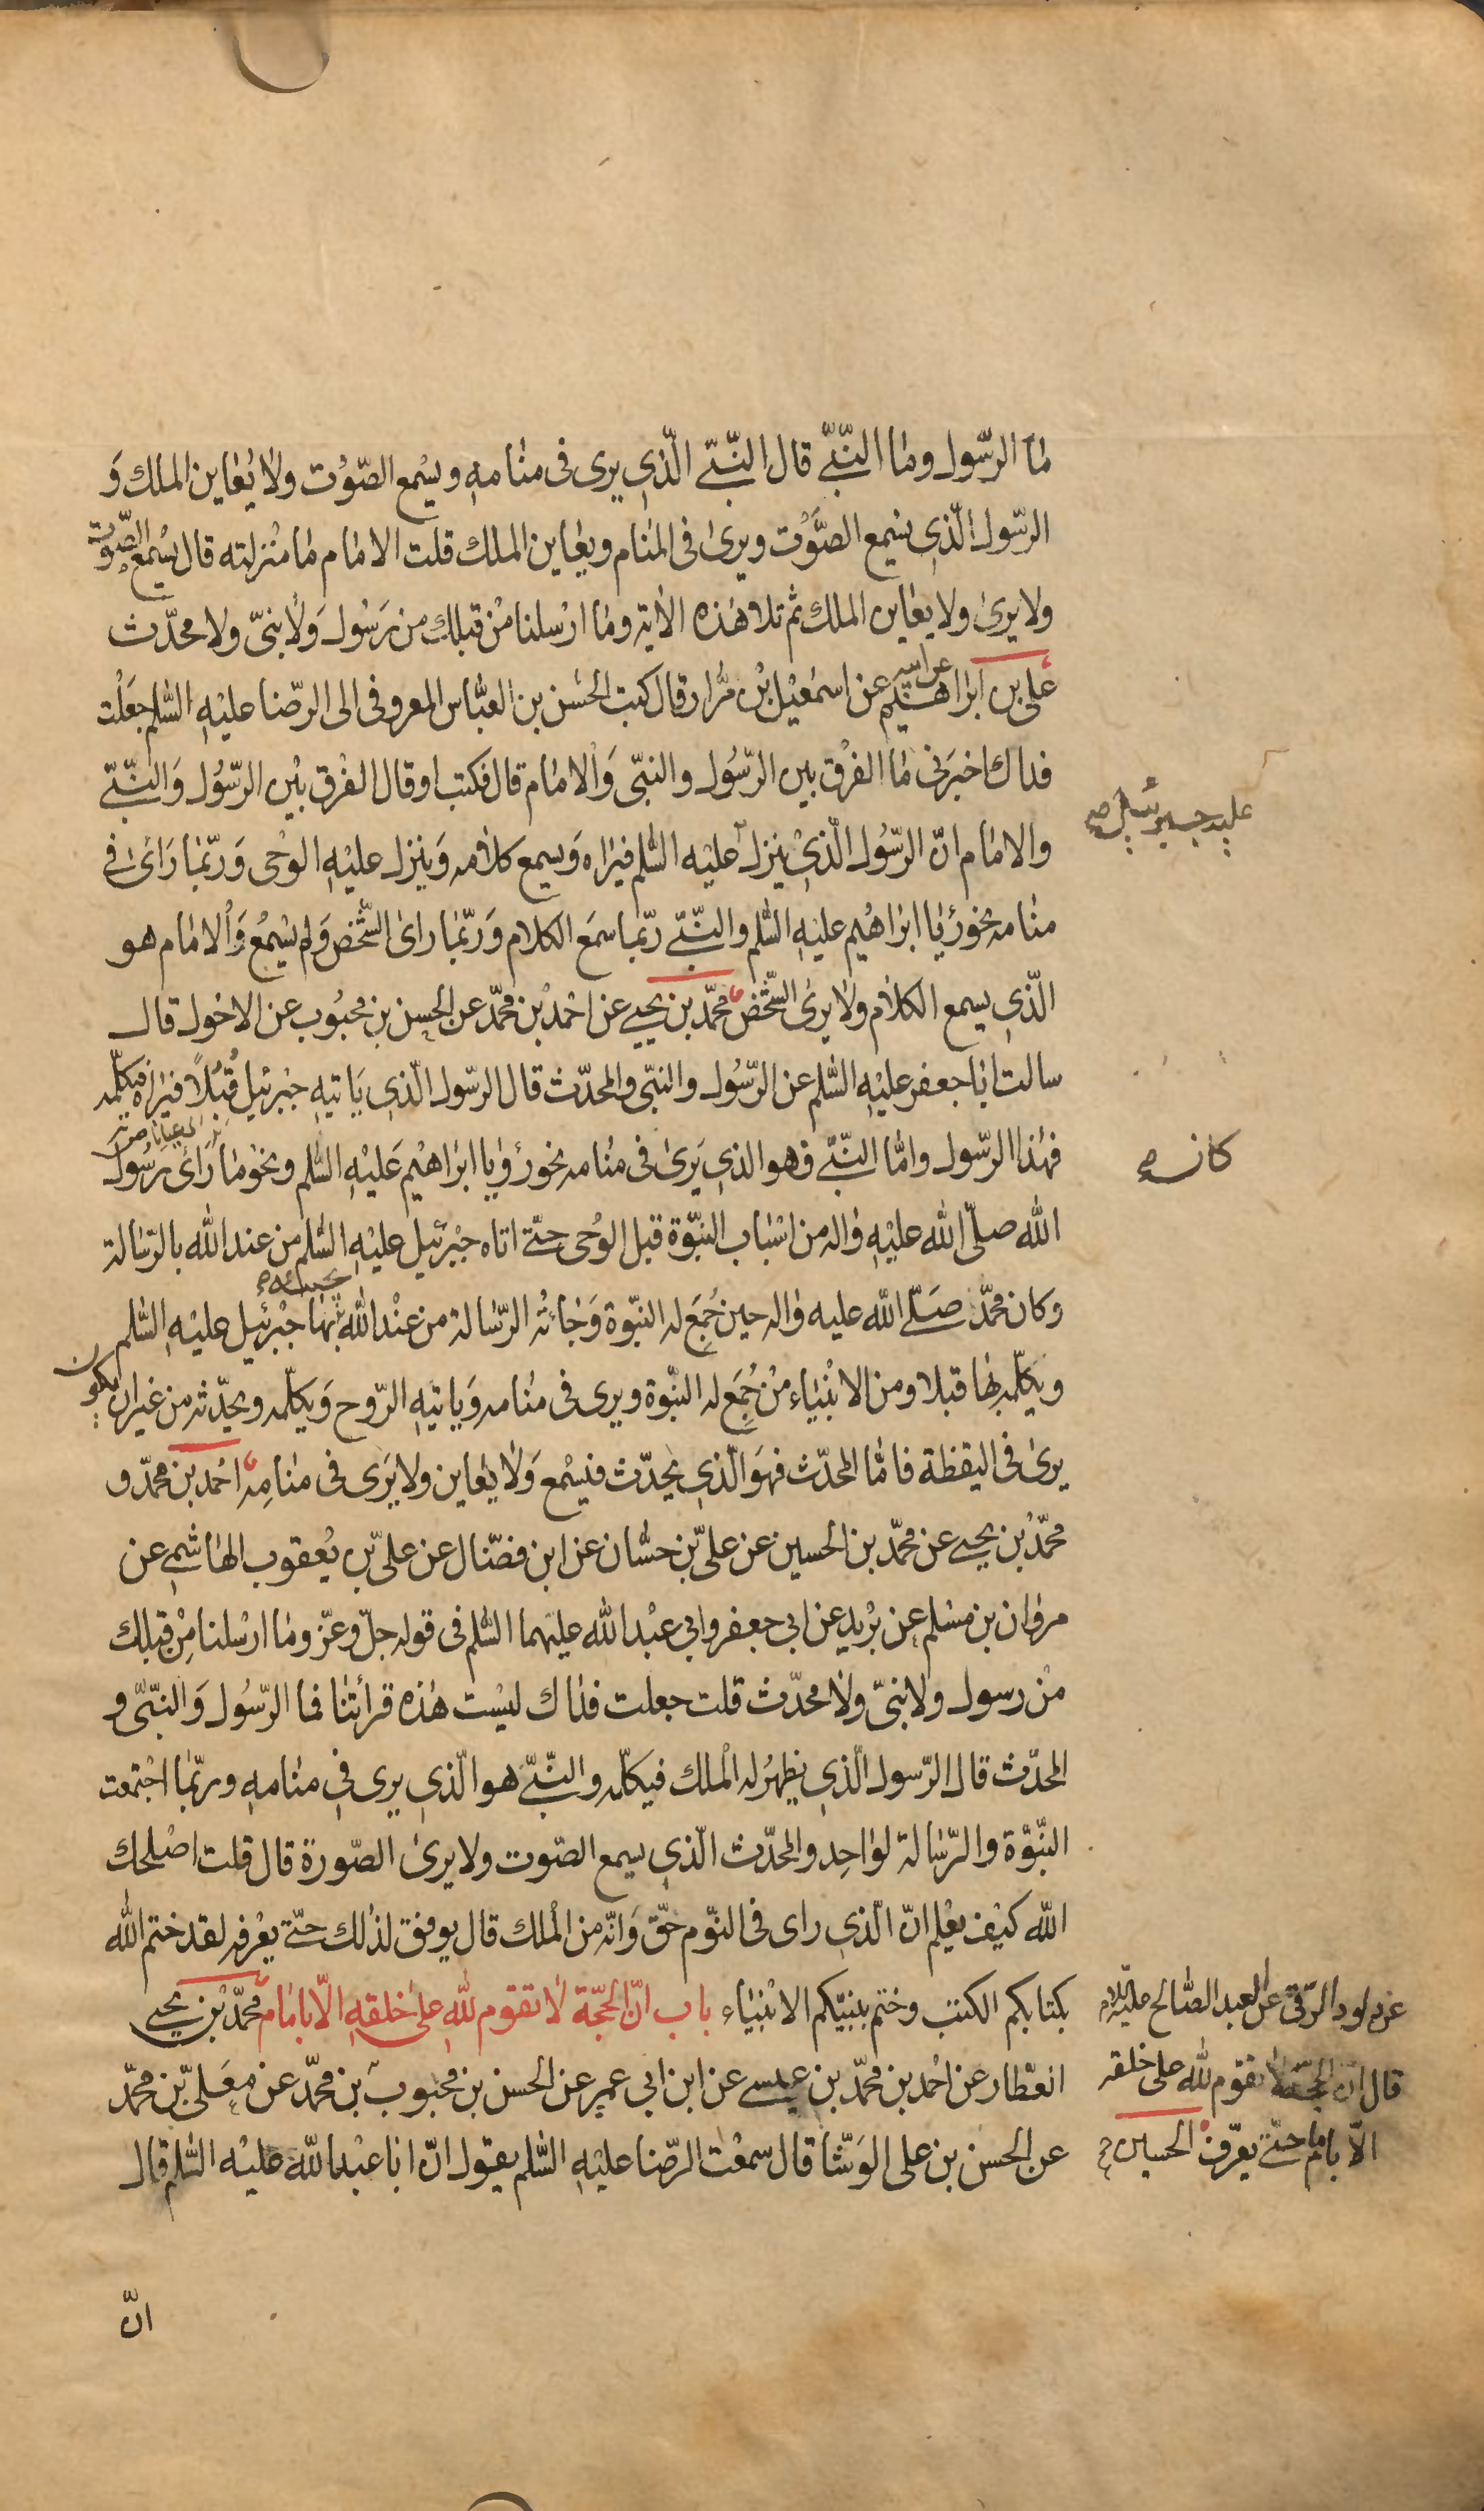 ما الرّسول وما النّبيّ قال النّبيّ الّذي يرى في منامه ويسمع الصّوت ولا يعاين الملك و
الرّسول الّذي يسمع الصّوت ويرى في المنام ويعاين الملك قلت الامام ما منزلته قال يسمع الصّوت
ولا يرى ولا يعاين الملك ثم تلا هذه الاية وما ارسلنا من قبلك من رسول ولا نبيّ ولا محدّث
علي بن ابراهيم عن ابيه عن اسمعيل بن مرّار قال كتب الحسن بن العبّاس المعروفي الى الرّضا عليه السّلم جعلت
فداك اخبرني ما الفرق بين الرّسول والنبّي والامام قال فكتب او قال الفرق بين الرّسول والنّبيّ
والامام انّ الرّسول الّذي ينزل عليه السّلم فيراه ويسمع كلامه وينزل عليه الوحى وربّما راى في
عليه جبرئيل صح
منامه نحو رؤيا ابراهيم عليه السّلم والنّبيّ ربّما سمع الكلام وربّما راى الشّخص ولم يسمع والامام هو
الّذي يسمع الكلام ولا يرى الشّخص محمّد بن يحيى عن احمد بن محمّد عن الحسن بن محبوب عن الاحول قال
سالت ابا جعفر عليه السّلم عن الرّسول والنبّي والمحدّث قال الرّسول الّذي ياتيه جبرئيل قبلاً فيراه فيكلّمه
فهذا الرّسول وامّا النّبيّ فهو الذي يرى في منامه نحو رؤيا ابراهيم عليه السّلم ونحو ما راى رسول
كان صح
الله صلّى الله عليه واله من اسباب النبّوة قبل الوحى حتّى اتاه جبرئيل عليه السّلم من عند الله بالرّسالة
وكان محمّد صلّى الله عليه واله حين جمع له النبّوة وجائته الرّسالة من عند الله يجيئه بها جبرئيل عليه السّلم
ويكلّمه بها قبلا ومن الانبياء من جمع له النبّوة ويرى في منامه وياتيه الرّوح ويكلّمه ويحدّثه من غير ان يكون
يرى في اليقظة فامّا المحدّث فهو الّذي يحدّث فيسمع ولا يعاين ولا يرى في منامه احمد بن محمّد و
محمّد بن يحيى عن محمّد بن الحسين عن عليّ بن حسّان عن ابن فضّال عن عليّ بن يعقوب الهاشمي عن
مروان بن مسلم عن بريد عن ابي جعفر وابي عبد الله عليهما السّلم في قوله جلّ وعزّ وما ارسلنا من قبلك
من رسول ولا نبيّ ولا محدّث قلت جعلت فداك ليست هذه قرائتنا فما الرّسول والنبّي و
المحدّث قال الرّسول الّذي يظهر له الملك فيكلّمه والنّبيّ هو الّذي يرى في منامه وربّما اجتمعت
النّبوّة والرّسالة لواحد والمحدّث الّذي يسمع الصّوت ولا يرى الصّورة قال قلت اصلحك
الله كيف يعلم انّ الّذي راى في النوّم حقّ وانّه من الملك قال يوفق لذلك حتّى يعرفه لقد ختم الله
بكتابكم الكتب وختم بنبيّكم الانبياء باب انّ الحجّة لا تقوم لله على خلقه الّا بامام محمّد بن يحيى
العطّار عن احمد بن محمّد بن عيسى عن ابن ابي عمير عن الحسن بن محبوب بن محمّد عن معلّى بن محمّد
عن الحسن بن علي الوشّا قال سمعت الرّضا عليه السّلم يقول انّ ابا عبد الله عليه السّلم قال
عن داود الرّقي عن العبد الصّالح عليه السّلام
قال انّ الحجّة لا تقوم لله على خلقه
الّا بامام حتّى يعرّف الحسين صح
انّ